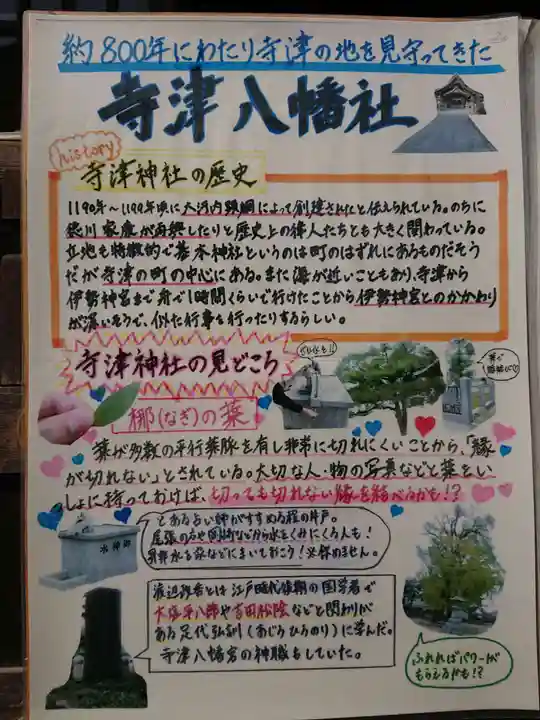 約800年にわたり寺津の地を見守ってきた
寺津八幡社
history
寺津神社の歴史
1190年～1199年頃に大河内顕綱によって創建されたと伝えられている。のちに
徳川家康が再興したりと歴史上の偉人たちとも大きく関わっている。
立地も特徴的で基本神社というのは町のはずれにあるものだそう
だが寺津の町の中心にある。また海が近いこともあり、寺津から
伊勢神宮まで舟で1時間くらいで行けたことから伊勢神宮とのかかわり
が深いそうで、似た行事を行ったりするらしい。
寺津神社の見どころ
梛(なぎ)の葉
葉が多数の平行葉脈を有し非常に切れにくいことから、「縁
が切れない」とされている。大切な人・物の写真などと葉をいっ
しょに持っておけば、切っても切れない縁を結べるかも!?
とある占い師がすすめる程の井戸。
尾張の方や岡崎などから水をくみにくる人も!
昇殿水を家などにまいておこう!※飲めません。
御神水
渡辺政香とは江戸時代後期の国学者で
大塩平八郎や吉田松陰などと関わりが
ある足代弘訓(あじろひろのり)に学んだ。
寺津八幡宮の神職もしていた。
ふれればパワーが
もらえるかも!?